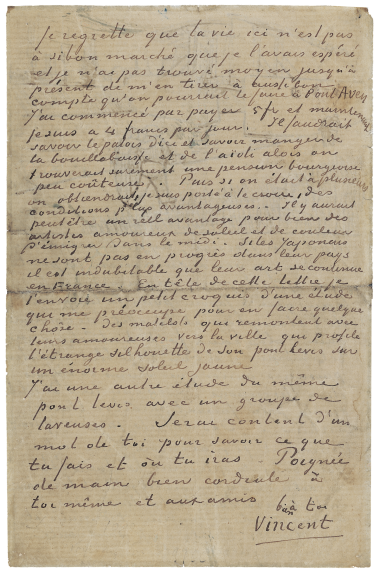 Je regrette que la vie ici n'est pas
à si bon marché que je l'avais espéré
et je n'ai pas trouvé moyen jusqu'à
présent de m'en tirer à aussi bon
compte qu'on pourrait le faire à Pont Aven
J'ai commencé par payer 5 fr et maintenant
je suis à 4 francs par jour. Il faudrait
savoir le patois d'ici et savoir manger de
la bouillabaisse et de l'aïoli alors on
trouverait sûrement une pension bourgeoise
peu coûteuse. Puis si on était à plusieurs
on obtiendrait, je suis porté à le croire, des
conditions plus avantageuses. Il y aurait
peutêtre un réel avantage pour bien des
artistes amoureux de soleil et de couleur
d'émigrer dans le midi. Si les Japonais
ne sont pas en progrès dans leur pays
il est indubitable que leur art se continue
en France. En tête de cette lettre je
t'envoie un petit croquis d'une étude
qui me préoccupe pour en faire quelque
chose. Des matelots qui remontent avec
leurs amoureuses vers la ville qui profile
l'étrange silhouette de son pont levis sur
un énorme soleil jaune
J'ai une autre étude du même
pont levis avec un groupe de
laveuses. Serai content d'un
mot de toi pour savoir ce que
tu fais et où tu iras. Poignée
de main bien cordiale à
toi même et aux amis
bien à toi
Vincent